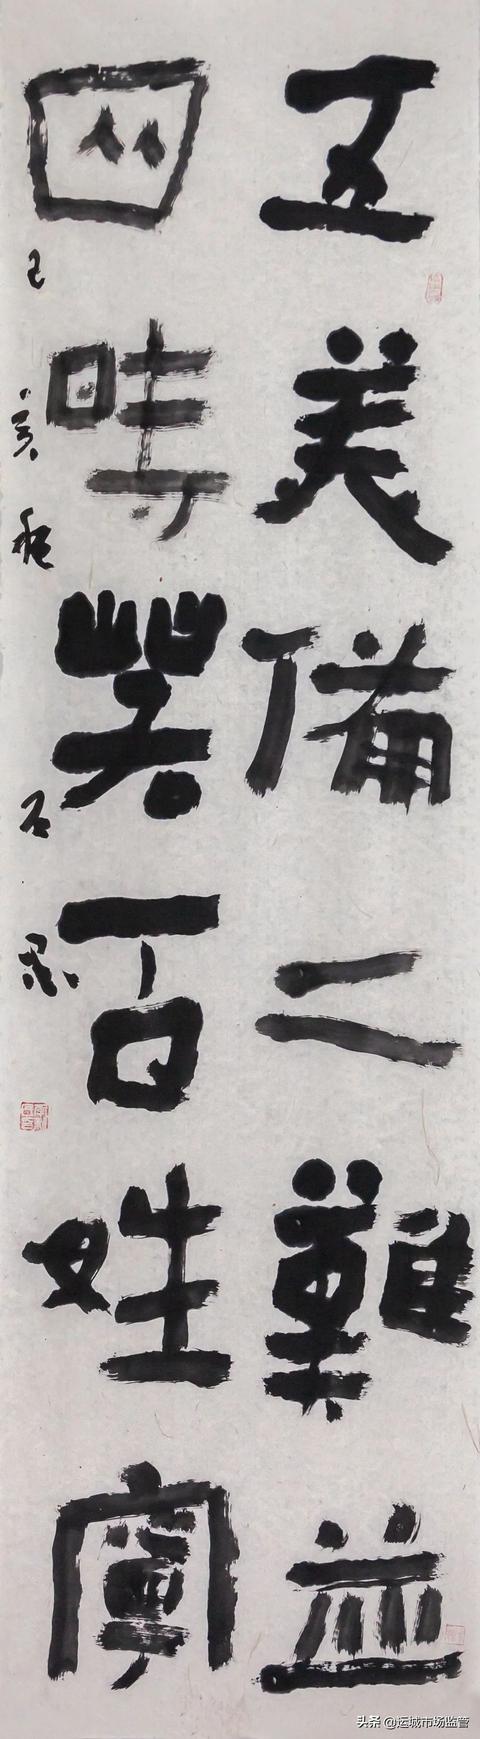 五美備二難並
四時若百姓寧
己亥秋 石
头条 @运城市场监管